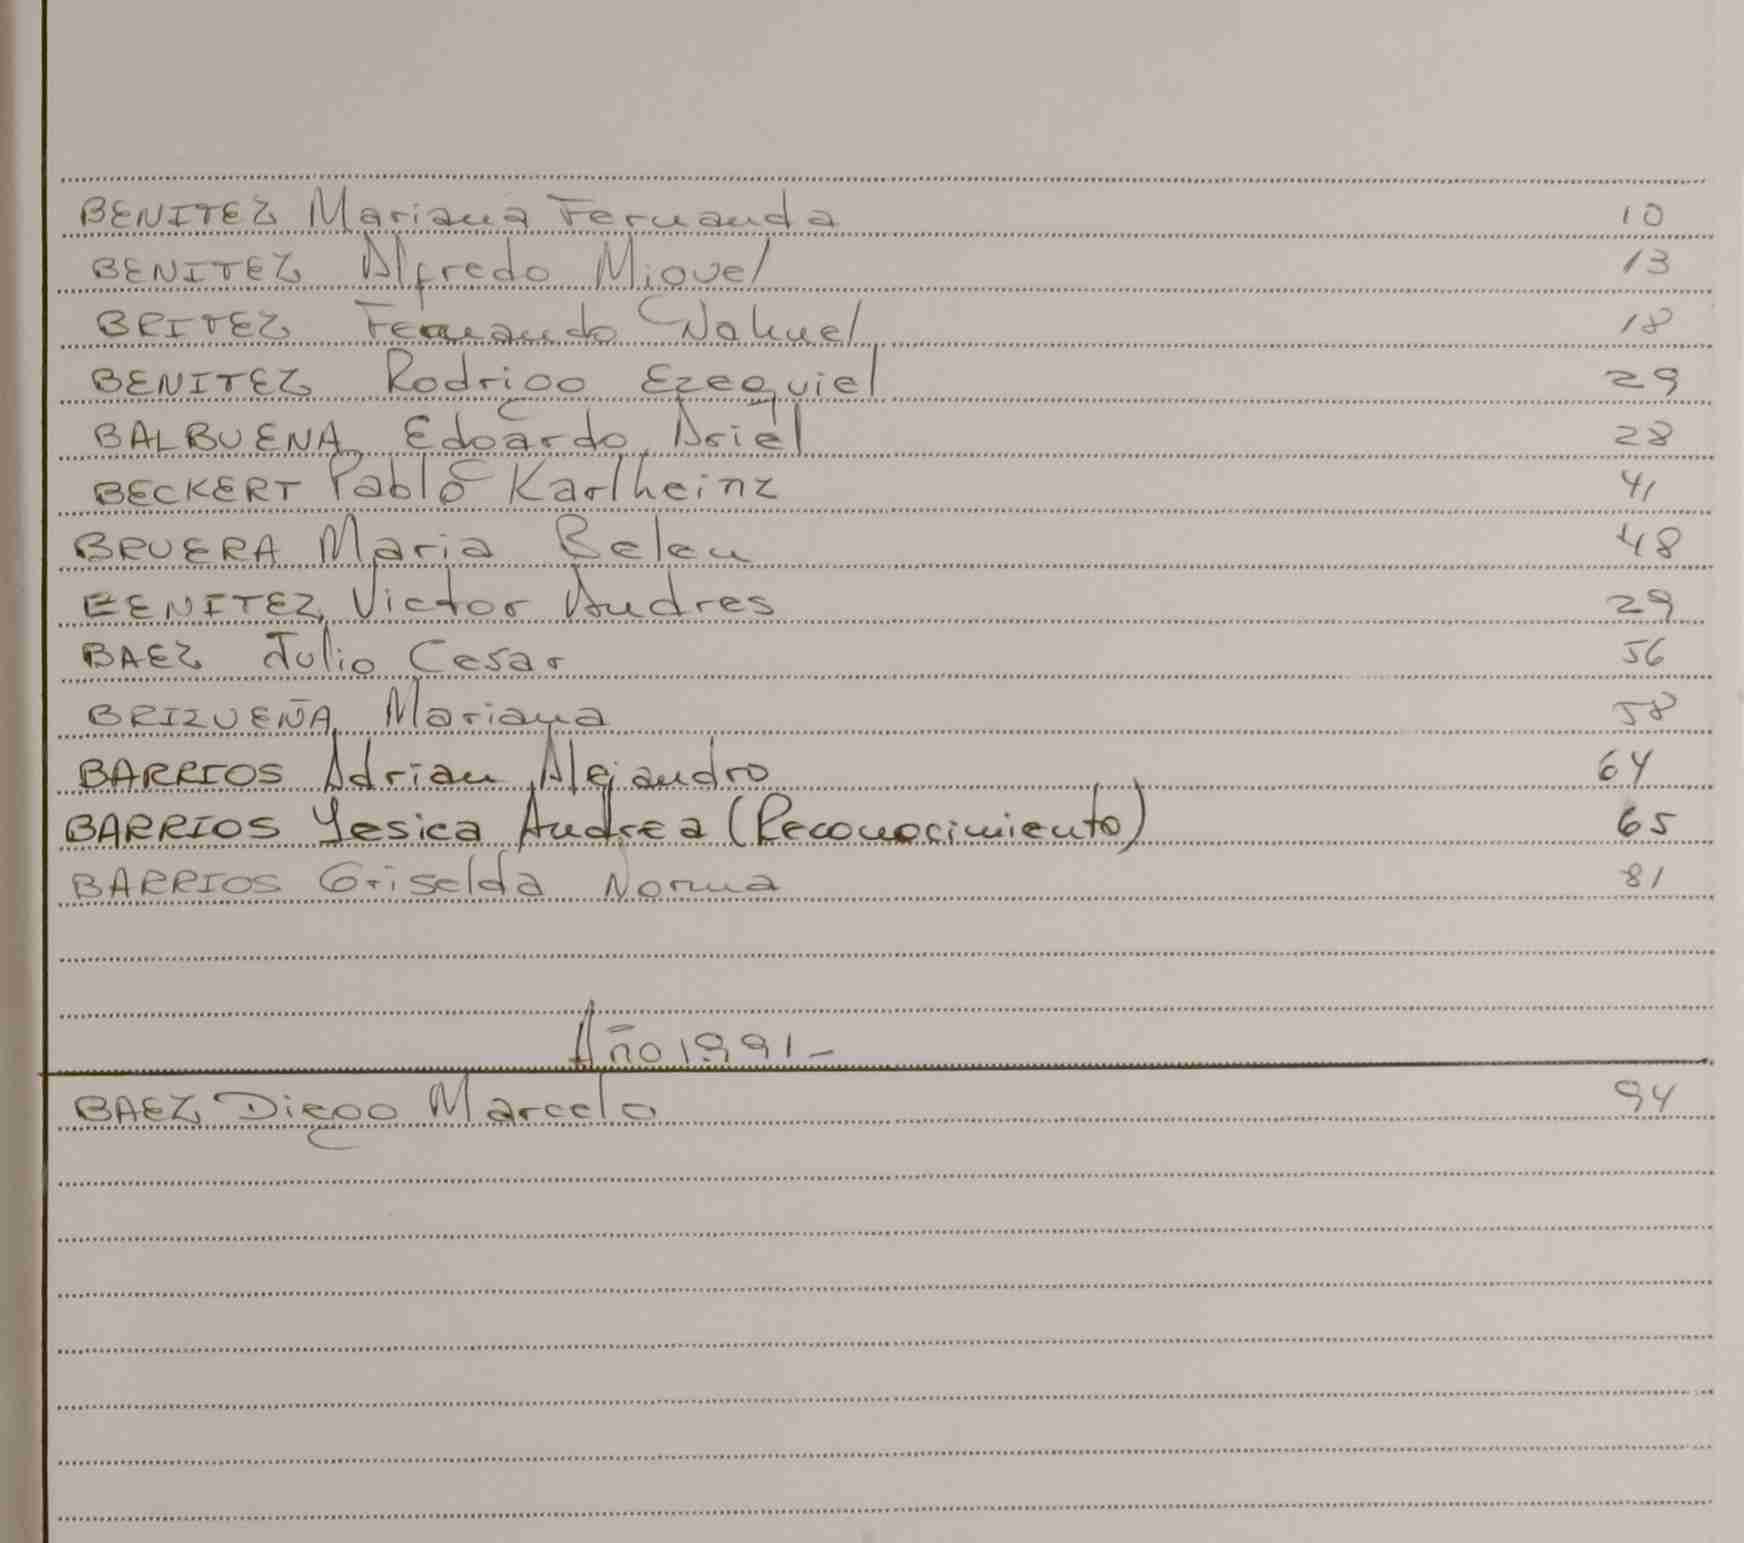 BENITEZ Mariana Fernanda 10
BENITEZ Alfredo Miguel 13
BRITEZ Fernando Nahuel 18
BENITEZ Rodrigo Ezequiel 29
BALBUENA Edoardo Ariel 28
BECKERT Pablo Karlheinz 41
BRUERA Maria Belen 48
BENITEZ Victor Andres 29
BAEZ Julio Cesar 56
BRIZUEÑA Mariana 58
BARRIOS Adrian Alejandro 64
BARRIOS Yesica Andrea (Reconocimiento) 65
BARRIOS Griselda Norma 81
Año 1991-
BAEZ Diego Marcelo 94